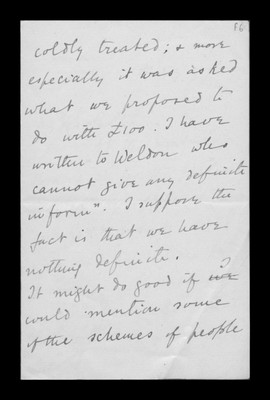 F6
coldly treated; & more
especially it was asked
what we proposed to
do with £100. I have
written to Weldon who
cannot give any definite
inform<sup>n</sup>. I suppose the
fact is that we have
nothing definite.
I
It might do good if we
could mention some
of the schemes of people